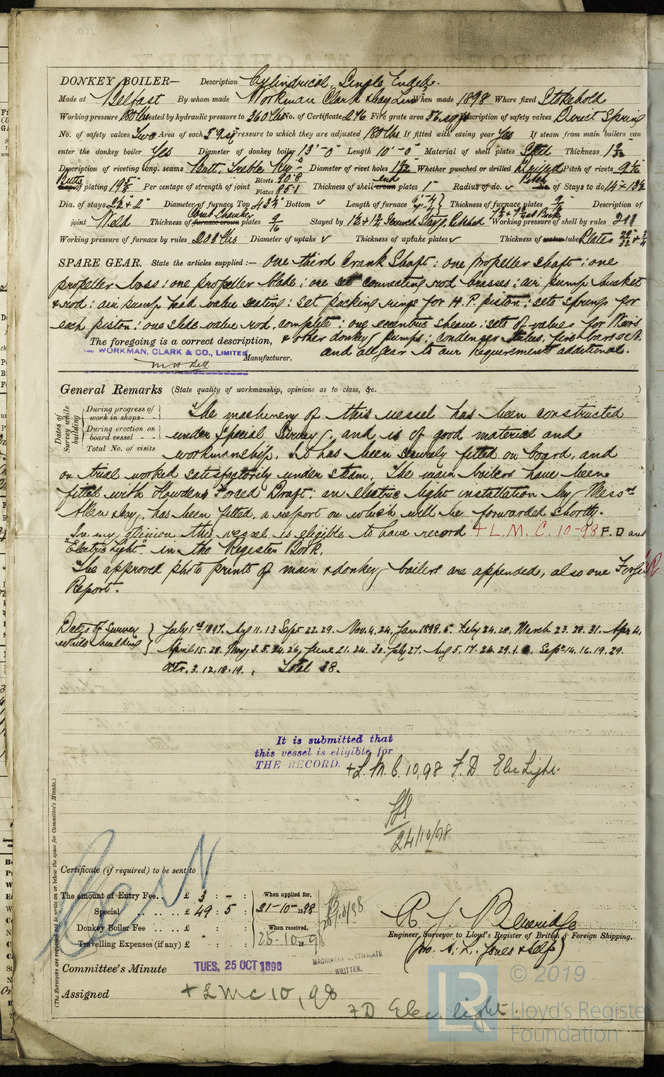 DONKEY BOILER— Description Cylindrical Single Ended.
Made at Belfast By whom made Workman Clark & Coy Lim When made 1898 Where fixed Stokehold
Working pressure tested by hydraulic pressure to 360 lbs No. of Certificate Fire grate area Description of safety valves Direct Spring
No. of safety valves Two Area of each Pressure to which they are adjusted 180 lbs If fitted with easing gear Yes If steam from main boilers can
enter the donkey boiler Yes Diameter of donkey boiler 13'-0" Length 10'-0" Material of shell plates Steel Thickness
Description of riveting long. seams Butt. Treble Riv. Diameter of rivet holes Whether punched or drilled Drilled Pitch of rivets
of plating Per centage of strength of joint Rivets Plates 85.1 Thickness of plates 1" Radius of do. ✓ No. of Stays to do.
Dia. of stays Diameter of furnace Top Bottom ✓ Length of furnace Thickness of furnace plates Description of
joint Weld Thickness of plates 9/16 Stayed by Working pressure of shell by rules
Working pressure of furnace by rules 200 lbs Diameter of uptake ✓ Thickness of uptake plates ✓ Thickness of tubes Plates
SPARE GEAR. State the articles supplied:— one third Crank Shaft: one propeller shaft: one
propeller boss: one propeller blade: one set connecting rod brasses: air pump bucket
& rod: air pump head valve seating: set packing rings for H.P. piston: sets springs for
each piston: one slide valve rod, complete: one eccentric sheave: sets of valves for Weirs
The foregoing is a correct description, & other donkey pumps: condenser tubes, fire bars &c.
WORKMAN, CLARK & CO., LIMITED and all gear to our requirements additional.
Manufacturer.
General Remarks (State quality of workmanship, opinions as to class, &c.
Dates of Survey while building
During progress of work in shops- -
During erection on board vessel - -
Total No. of visits
The machinery of this vessel has been constructed
under Special Survey, and is of good material and
workmanship. It has been securely fitted on board, and
on trial worked satisfactorily under steam. The main boilers have been
fitted with Howdens Forced Draft: an electric light installation by Messrs
has been fitted, a report on which will be forwarded shortly.
In my opinion this vessel is eligible to have record + L.M.C. 10-98 F.D and
"Electric Light" in the Register Book.
The approved photo prints of main & donkey boilers are appended, also one Forging
Report.
Dates of Survey while building } July 1st 1897. Aug 11. 13 Sept 22. 29. Nov. 4. 24, Jan 1898. 6. Feby 24. 28. March 23. 28. 31. Apr 4,
April 15. 28. May 3. 5. 24. 26, June 21. 24. 30. July 27. Aug 5. 17. 24. 29. Sep. 14. 16. 19. 29.
Octr. 3. 12. 18. 19. Total 38.
It is submitted that
this vessel is eligible for
THE RECORD. + L.M.C. 10,98 F.D Elec Light.
24/10/98
(The Surveyors are requested not to write on or below the space for Committee's Minute.)
Certificate (if required) to be sent to
The amount of Entry Fee. . £ 3 : - : When applied for,
Special . . . . £ 49 : 5 : 21-10-98
Donkey Boiler Fee . . . £ : : When received,
Travelling Expenses (if any) £ : : 25-10-98
Engineer Surveyor to Lloyd's Register of British & Foreign Shipping.
(pro. A. L. Jones & Self)
MACHINERY CERTIFICATE
WRITTEN.
Committee's Minute TUES. 25 OCT 1898
Assigned + LMC 10,98
FD Elec. light
© 2019
LR Lloyd's Register
Foundation